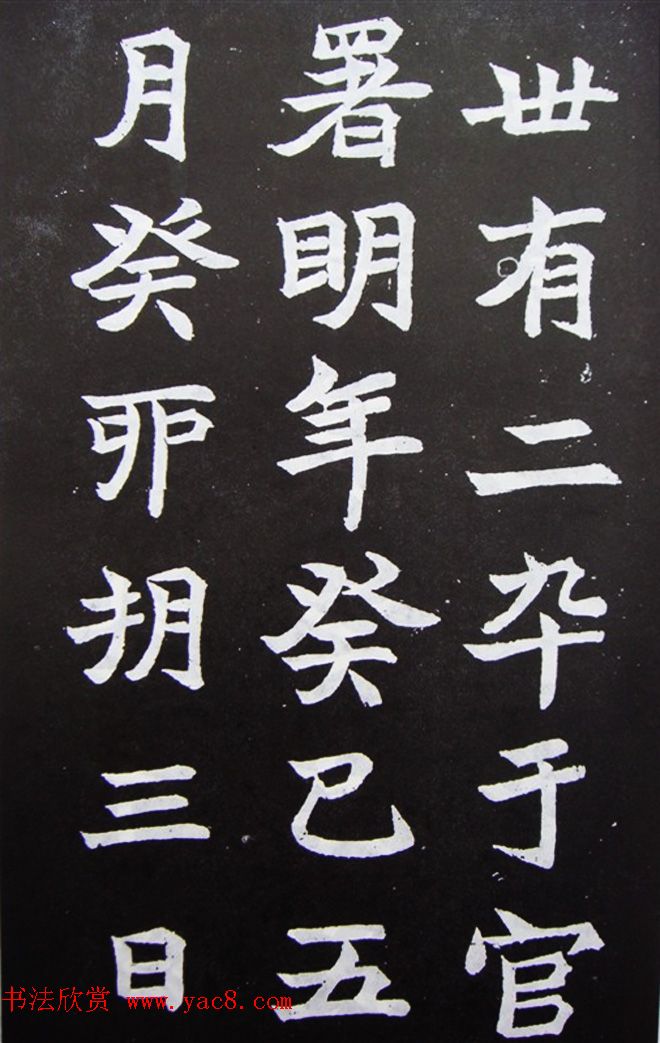 丗有二卒于官
署明年癸巳五
月癸卯朔三日
书法欣赏 www.yac8.com